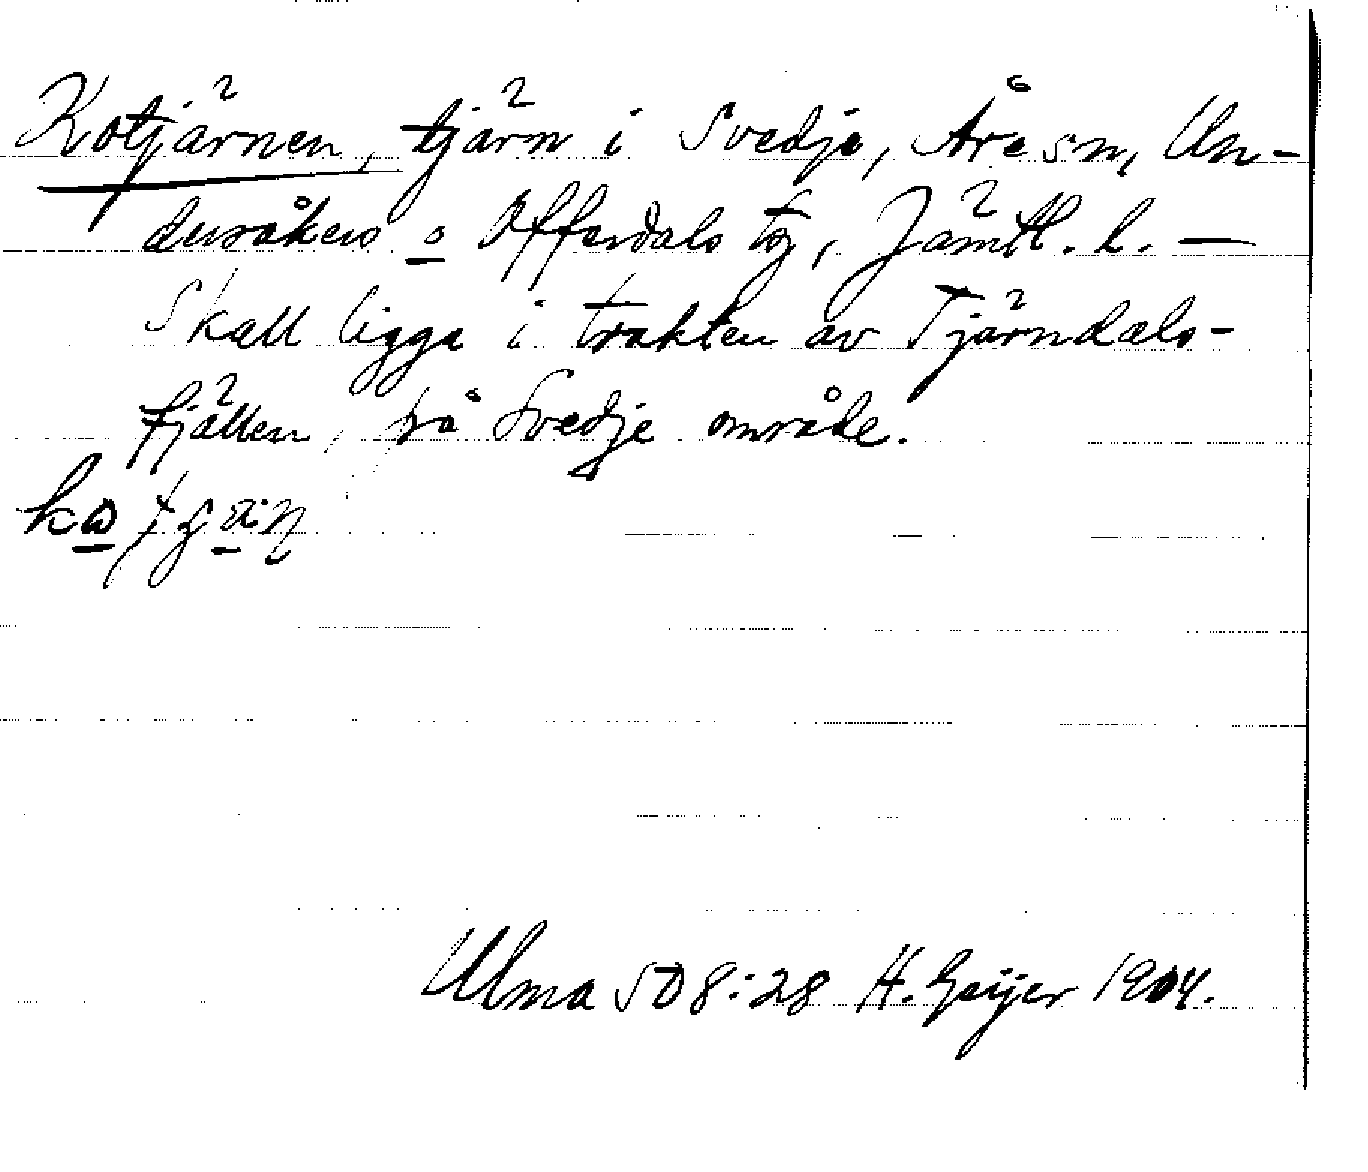 Kotjärnen, tjärn i Svedje, Åre sn, Un-
dersåkers o Offerdals tg, Jämtl. l. —
Skall ligga i trakten av Tjärndals-
fjällen, på Svedje område.
Ulma 508:28 H. Geijer 1904.